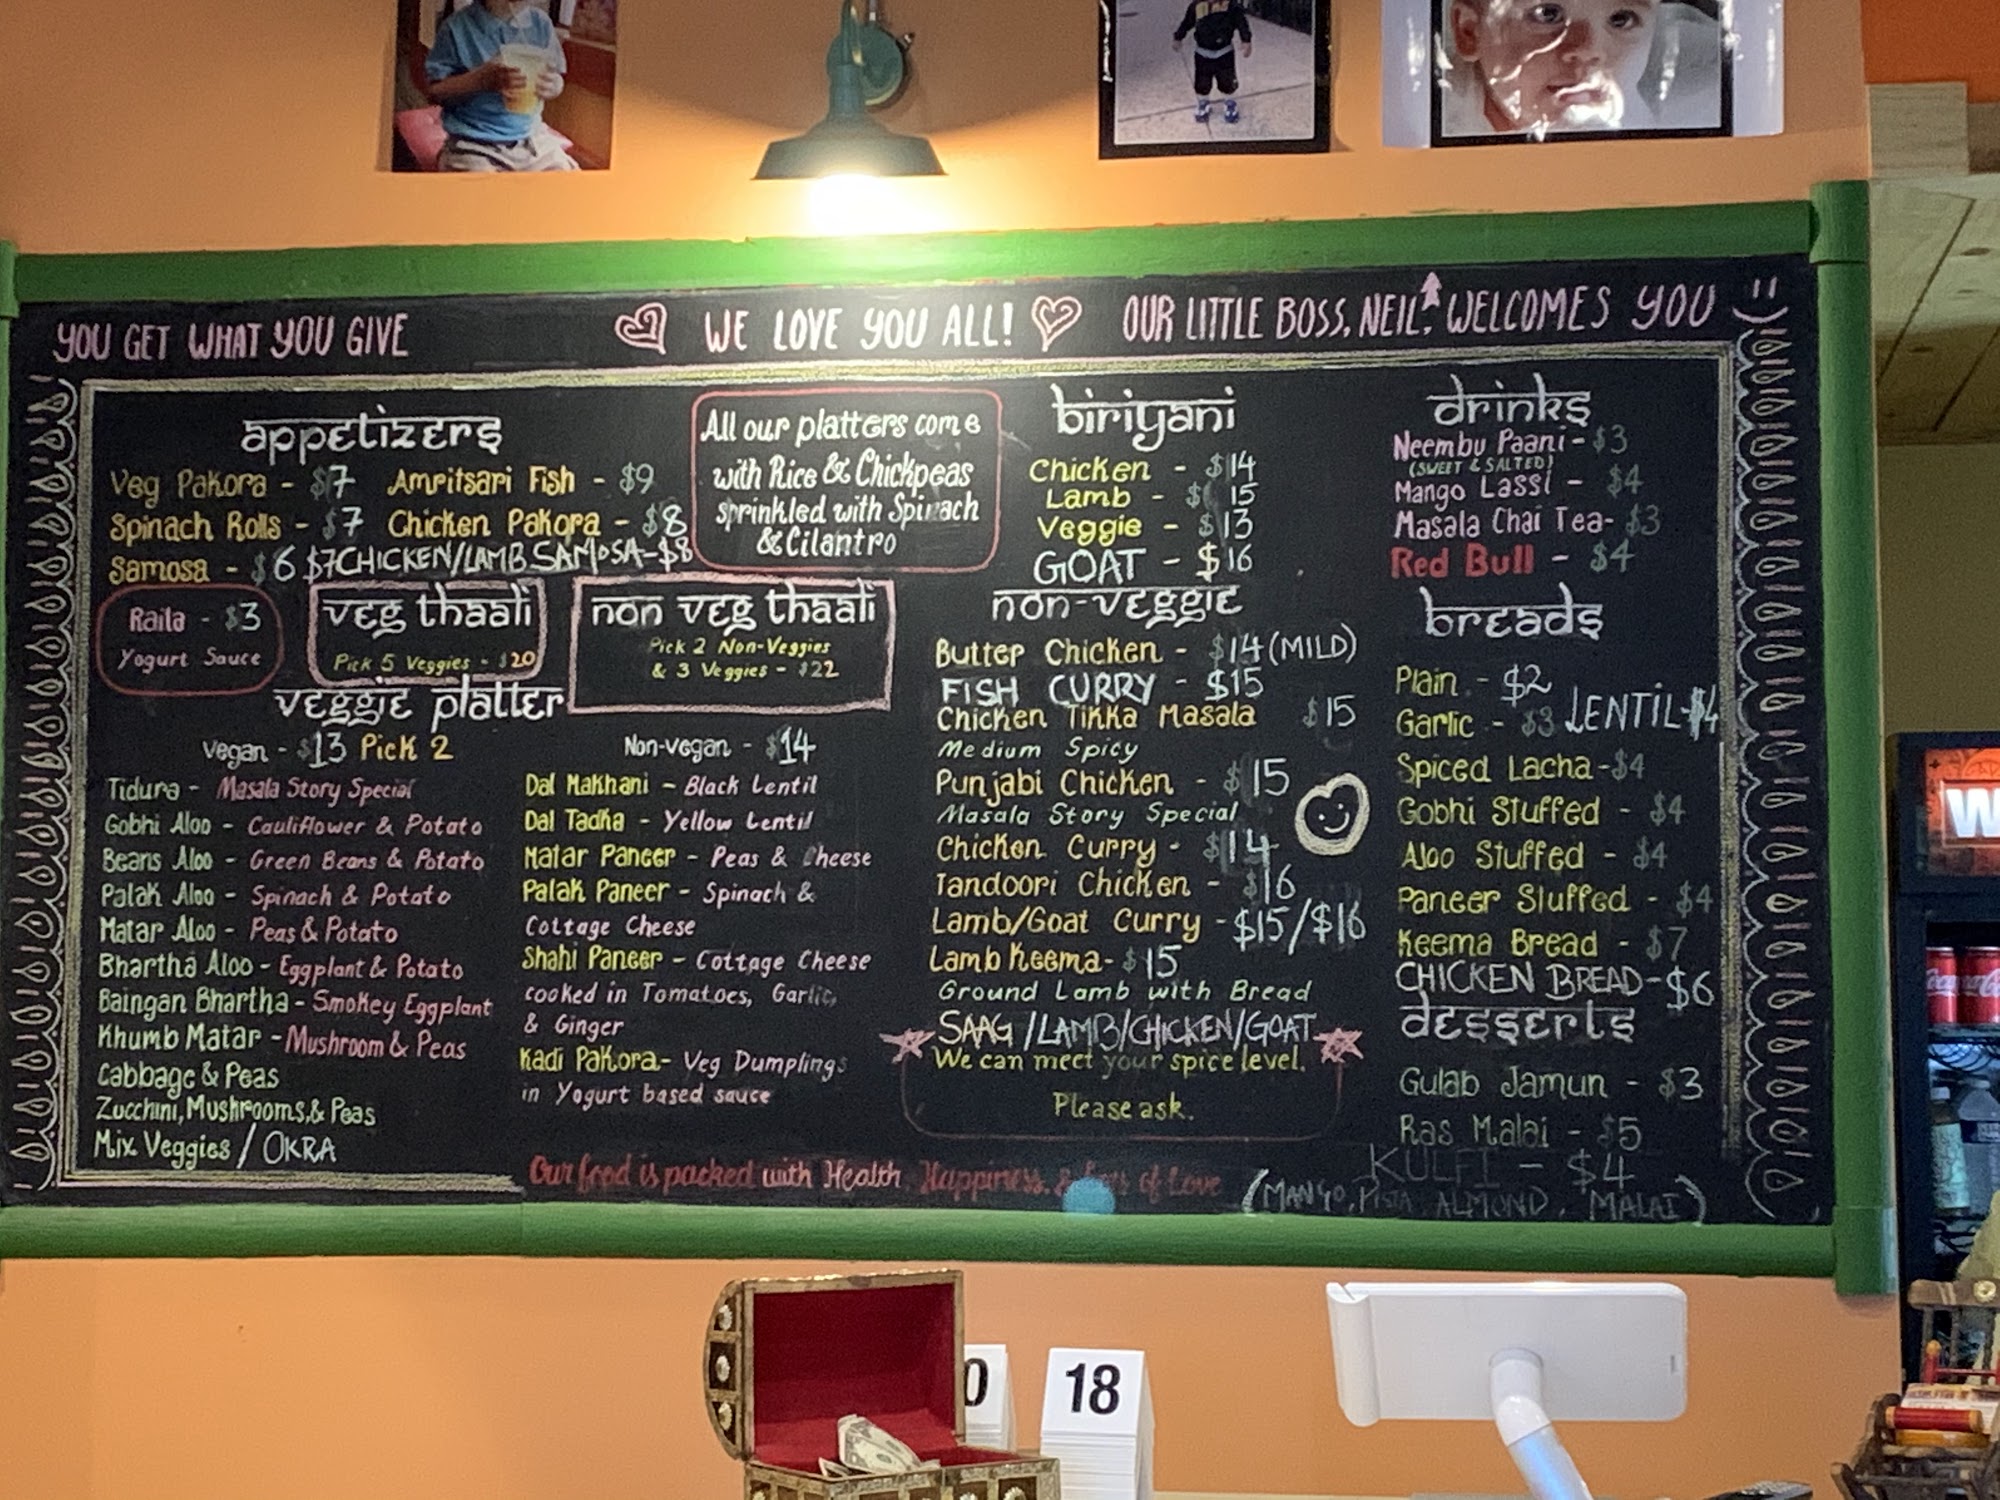 YOU GET WHAT YOU GIVE
WE LOVE YOU ALL!
OUR LITTLE BOSS, NEIL. WELCOMES YOU
appetizers
Veg Pakora - $7
Amritsari Fish - $9
Spinach Rolls - $7
Chicken Pakora - $8
Samosa - $6
$7CHICKEN/LAMB SAMOSA-$8
Raita - $3
Yogurt Sauce
veg thaali
Pick 5 Veggies - $20
non veg thaali
Pick 2 Non-Veggies
& 3 Veggies - $22
All our platters come
with Rice & Chickpeas
sprinkled with Spinach
& Cilantro
veggie platter
Vegan - $13 Pick 2
Tidura - Masala Story Special
Gobhi Aloo - Cauliflower & Potato
Beans Aloo - Green Beans & Potato
Palak Aloo - Spinach & Potato
Matar Aloo - Peas & Potato
Bhartha Aloo - Eggplant & Potato
Baingan Bhartha - Smokey Eggplant
Khumb Matar - Mushroom & Peas
Cabbage & Peas
Zucchini, Mushrooms, & Peas
Mix Veggies / OKRA
Non-vegan - $14
Dal Makhani - Black Lentil
Dal Tadka - Yellow Lentil
Matar Paneer - Peas & Cheese
Palak Paneer - Spinach &
Cottage Cheese
Shahi Paneer - Cottage Cheese
cooked in Tomatoes, Garlic,
& Ginger
Kadi Pakora - Veg Dumplings
in Yogurt based sauce
biriyani
Chicken - $14
Lamb - $15
Veggie - $13
GOAT - $16
non-veggie
Butter Chicken - $14 (MILD)
FISH CURRY - $15
Chicken Tikka Masala $15
Medium Spicy
Punjabi Chicken - $15
Masala Story Special
Chicken Curry - $14
Tandoori Chicken - $16
Lamb/Goat Curry - $15/$16
Lamb Keema - $15
Ground Lamb with Bread
SAAG /LAMB/CHICKEN/GOAT
We can meet your spice level.
Please ask.
drinks
Neembu Paani - $3
(SWEET & SALTED)
Mango Lassi - $4
Masala Chai Tea - $3
Red Bull - $4
breads
Plain - $2
Garlic - $3
LENTIL-$4
Spiced Lacha - $4
Gobhi Stuffed - $4
Aloo Stuffed - $4
Paneer Stuffed - $4
Keema Bread - $7
CHICKEN BREAD - $6
desserts
Gulab Jamun - $3
Ras Malai - $5
KULFI - $4
(MANGO, PISTA, ALMOND, MALAI)
Our food is packed with Health, Happiness, & of Love
W
0
18